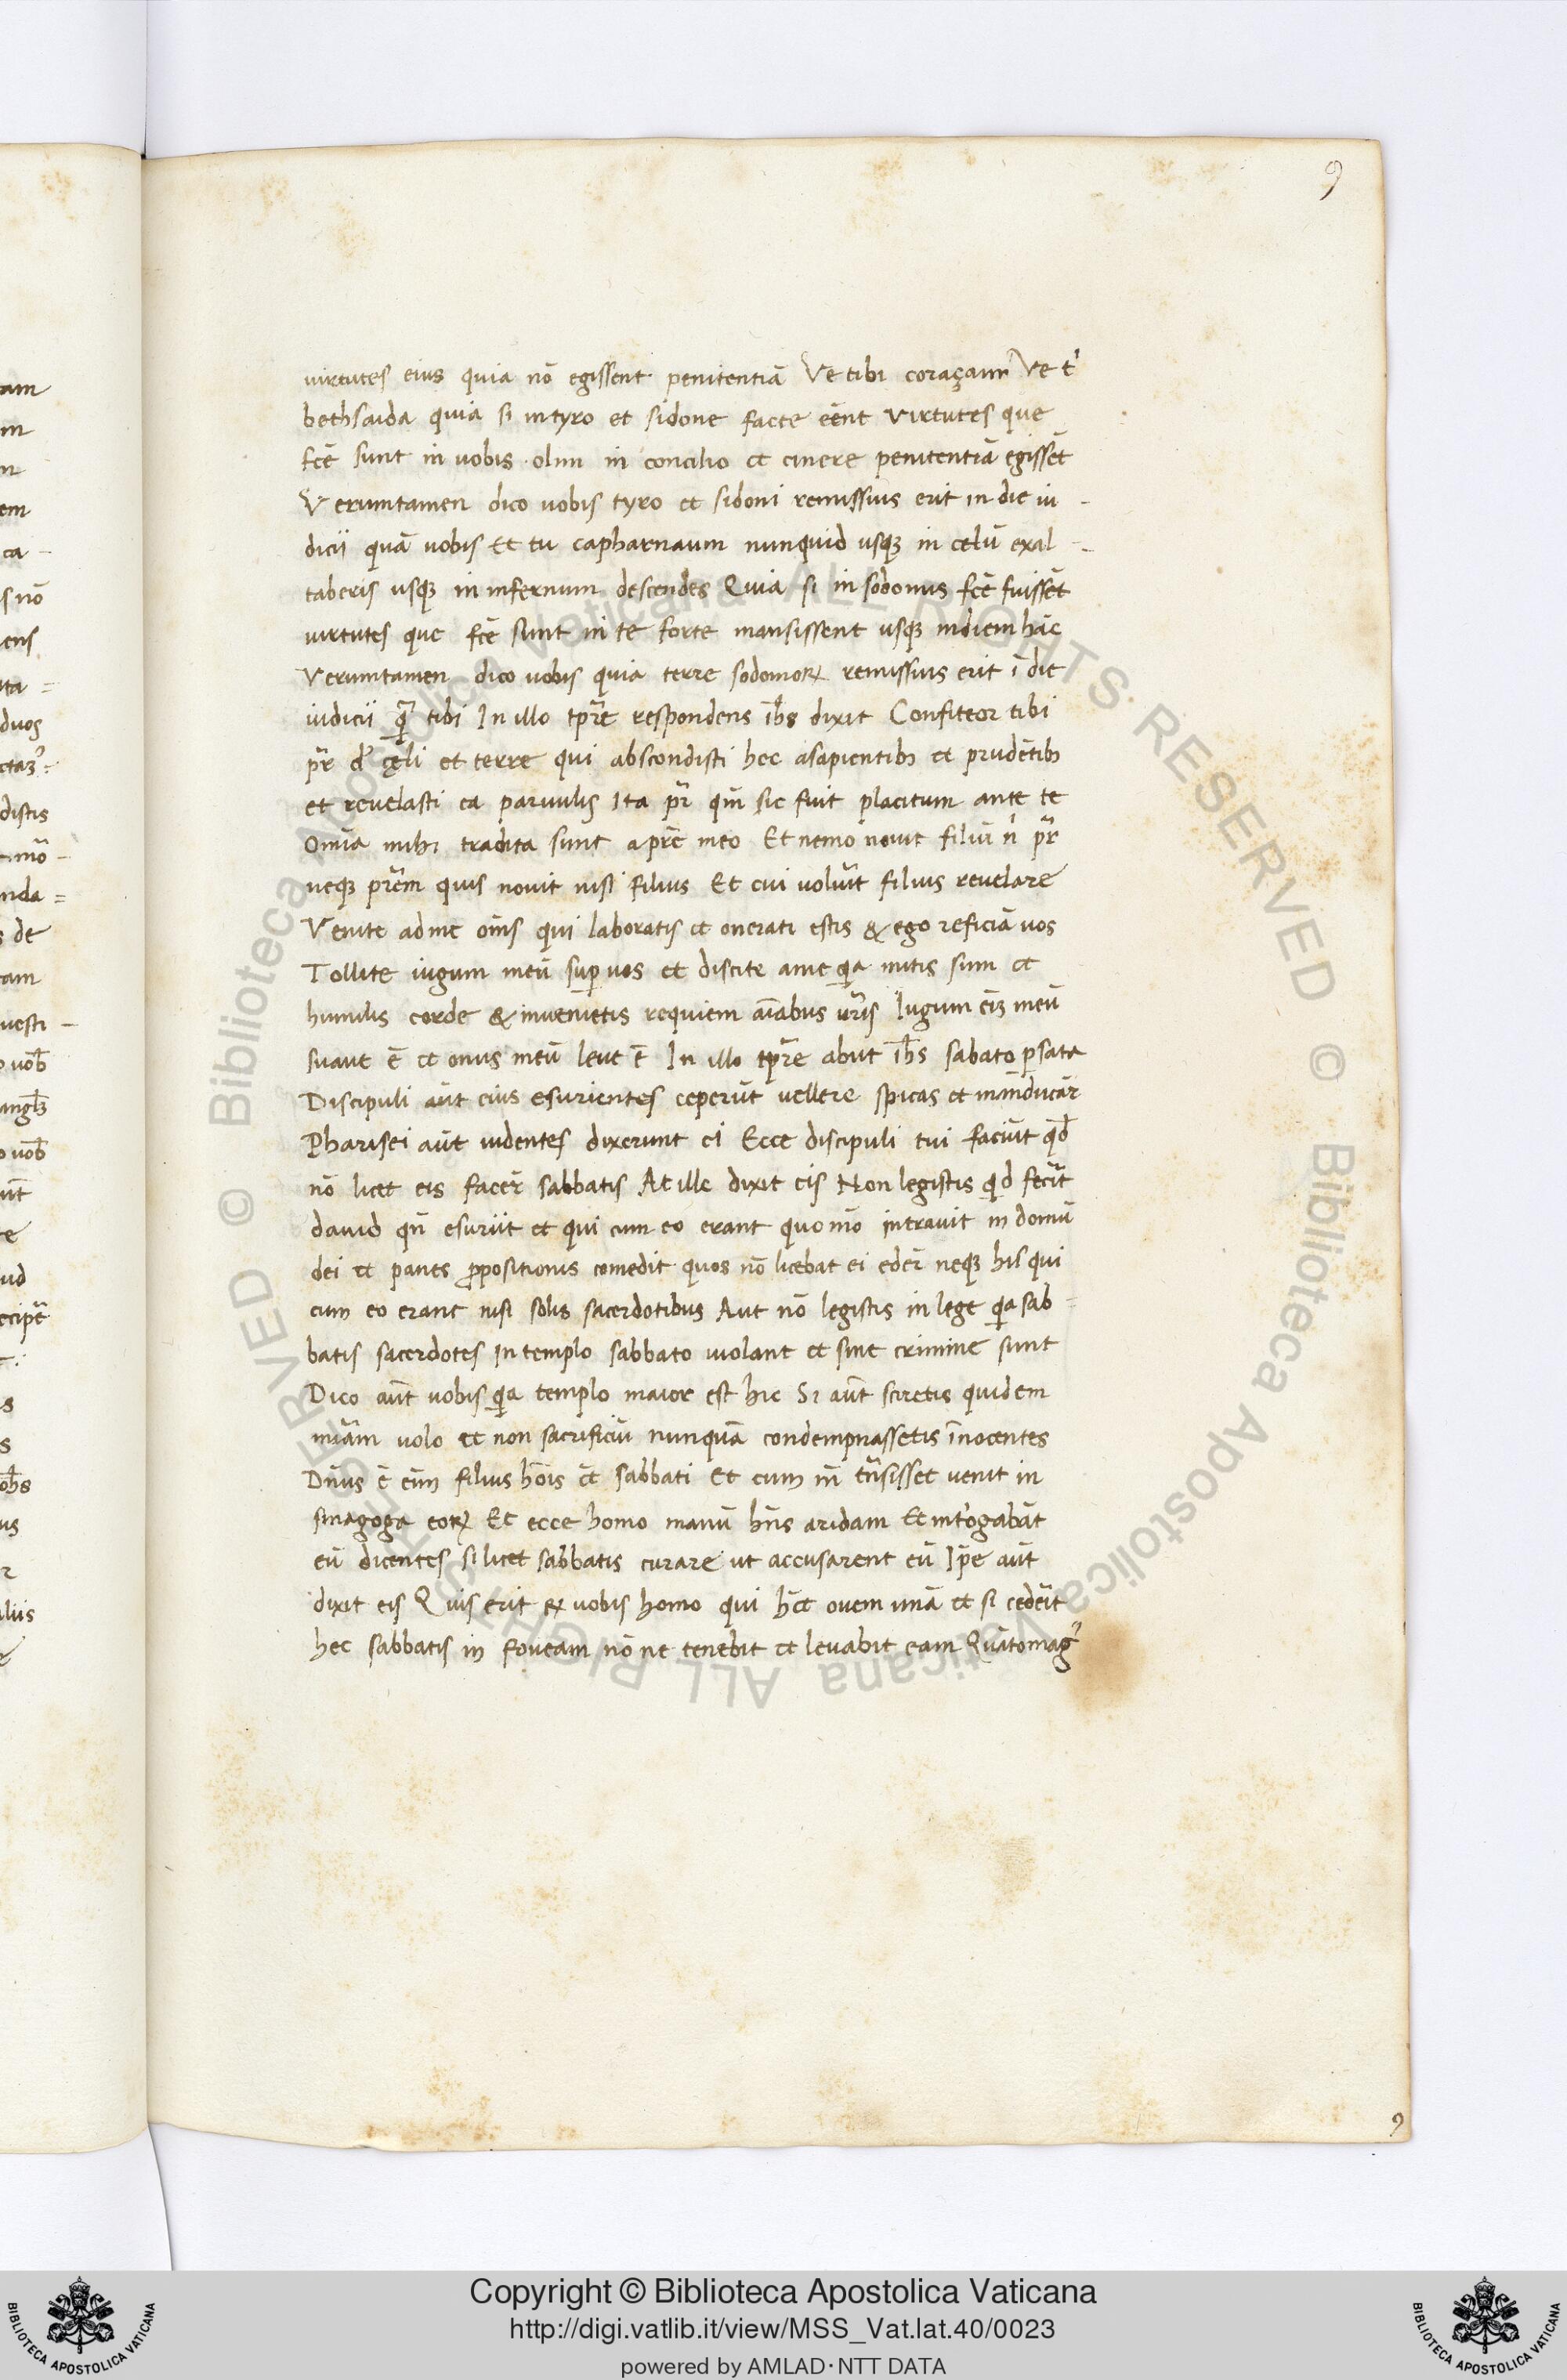 9
uirtutes eius quia nō egissent penitentiā Ve tibi coraçaim Ve t'
bethsaida quia si in tyro et sidone facte eēnt virtutes que
fcē sunt in uobis olim in concilio et cinere penitentiā egissēt
Verumtamen dico uobis tyro et sidoni remissius erit in die iu -
dicii quā uobis Et tu capharnaum nunquid usqꝫ in celū exal -
taberis usqꝫ in infernum descendes Quia si in sodomis fcē fuissēt
uirtutes que fcē sunt in te forte mansissent usqꝫ in diem hāc
Verumtamen dico uobis quia terre sodomoꝝ remissius erit ī die
iudicii q̄ tibi In illo tp̄re respondens ih̄s dixit Confiteor tibi
pr̄ d' cęli et terre qui abscondisti hec a sapientibꝫ et prudētibꝫ
et reuelasti ea paruulis Ita pr̄ qm̄ sic fuit placitum ante te
Omīa mihi tradita sunt a pr̄e meo Et nemo nouit filiū n' pr̄
neqꝫ pr̄em quis nouit nisi filius Et cui voluīt filius reuelare
Venite ad me om̄s qui laboratis et onerati estis & ego reficiā uos
Tollite iugum meū sup̱ uos et discite a me qͥa mitis sum et
humilis corde & inuenietis requiem aīabus ur̄is Iugum ēiꝫ meū
suaue ē et onus meū leue ē In illo tp̄re abiit ih̄s sabato p̱ sata
Discipuli aūt eius esurientes ceperūt uellere spicas et māducar̄
Pharisei aūt uidentes dixerunt ei Ecce discipuli tui faciūt qd̄
nō licet eis facer̄ sabbatis At ille dixit eis Non legistis qͥd fecit
dauid qn̄ esuriit et qui cum eo erant quo mō intrauit in domū
dei et panes ꝓpositionis comedit quos nō licebat ei eder̄ neqꝫ his qui
cum eo erant nisi solis sacerdotibus Aut nō legistis in lege qͥa sab =
batis sacerdotes in templo sabbato uiolant et sine crimine sunt
Dico aūt uobis qͥa templo maior est hic Si aūt sciretis quid em
mīam uolo et non sacrificiū nunquā condempnassetis īnocentes
Dn̄us ē eīm filius hōis ēt sabbati Et cum īn trn̄sisset uenit in
sinagoga eoꝝ Et ecce homo manū hn̄s aridam Et int'ogabāt
eū dicentes si licet sabbatis curare ut accusarent eū Ip̄e aūt
dixit eis Quis erit ex uobis homo qui hēt ouem unā et si cedeīt
hec sabbatis in foueam nō ne tenebit et leuabit eam Quāto mag'
9
Copyright © Biblioteca Apostolica Vaticana
http://digi.vatlib.it/view/MSS_Vat.lat.40/0023
powered by AMLAD·NTT DATA